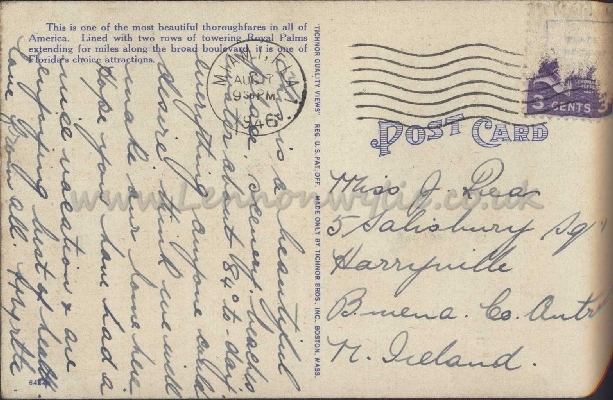 This is one of the most beautiful thoroughfares in all of
America. Lined with two rows of towering Royal Palms
extending for miles along the broad boulevard, it is one of
Florida's choice attractions.
is a beautiful
scenery, beaches
water about 84° to day.
everything anyone could
desire, think we will
make our home here
Hope you have had a
nice vacation & are
enjoying best of health.
Love from all Myrtle
64
TICHNOR QUALITY VIEWS REG. U.S. PAT. OFF. MADE ONLY BY TICHNOR BROS. INC. BOSTON, MASS.
MIAMI, FLA.
AUG
PM
1946
3 CENTS 3
POST CARD
Miss J. Rea
5 Salisbury Sq
Harryville
B.mena. Co. Antr
N. Ireland.
www.Lennonwylie.co.uk